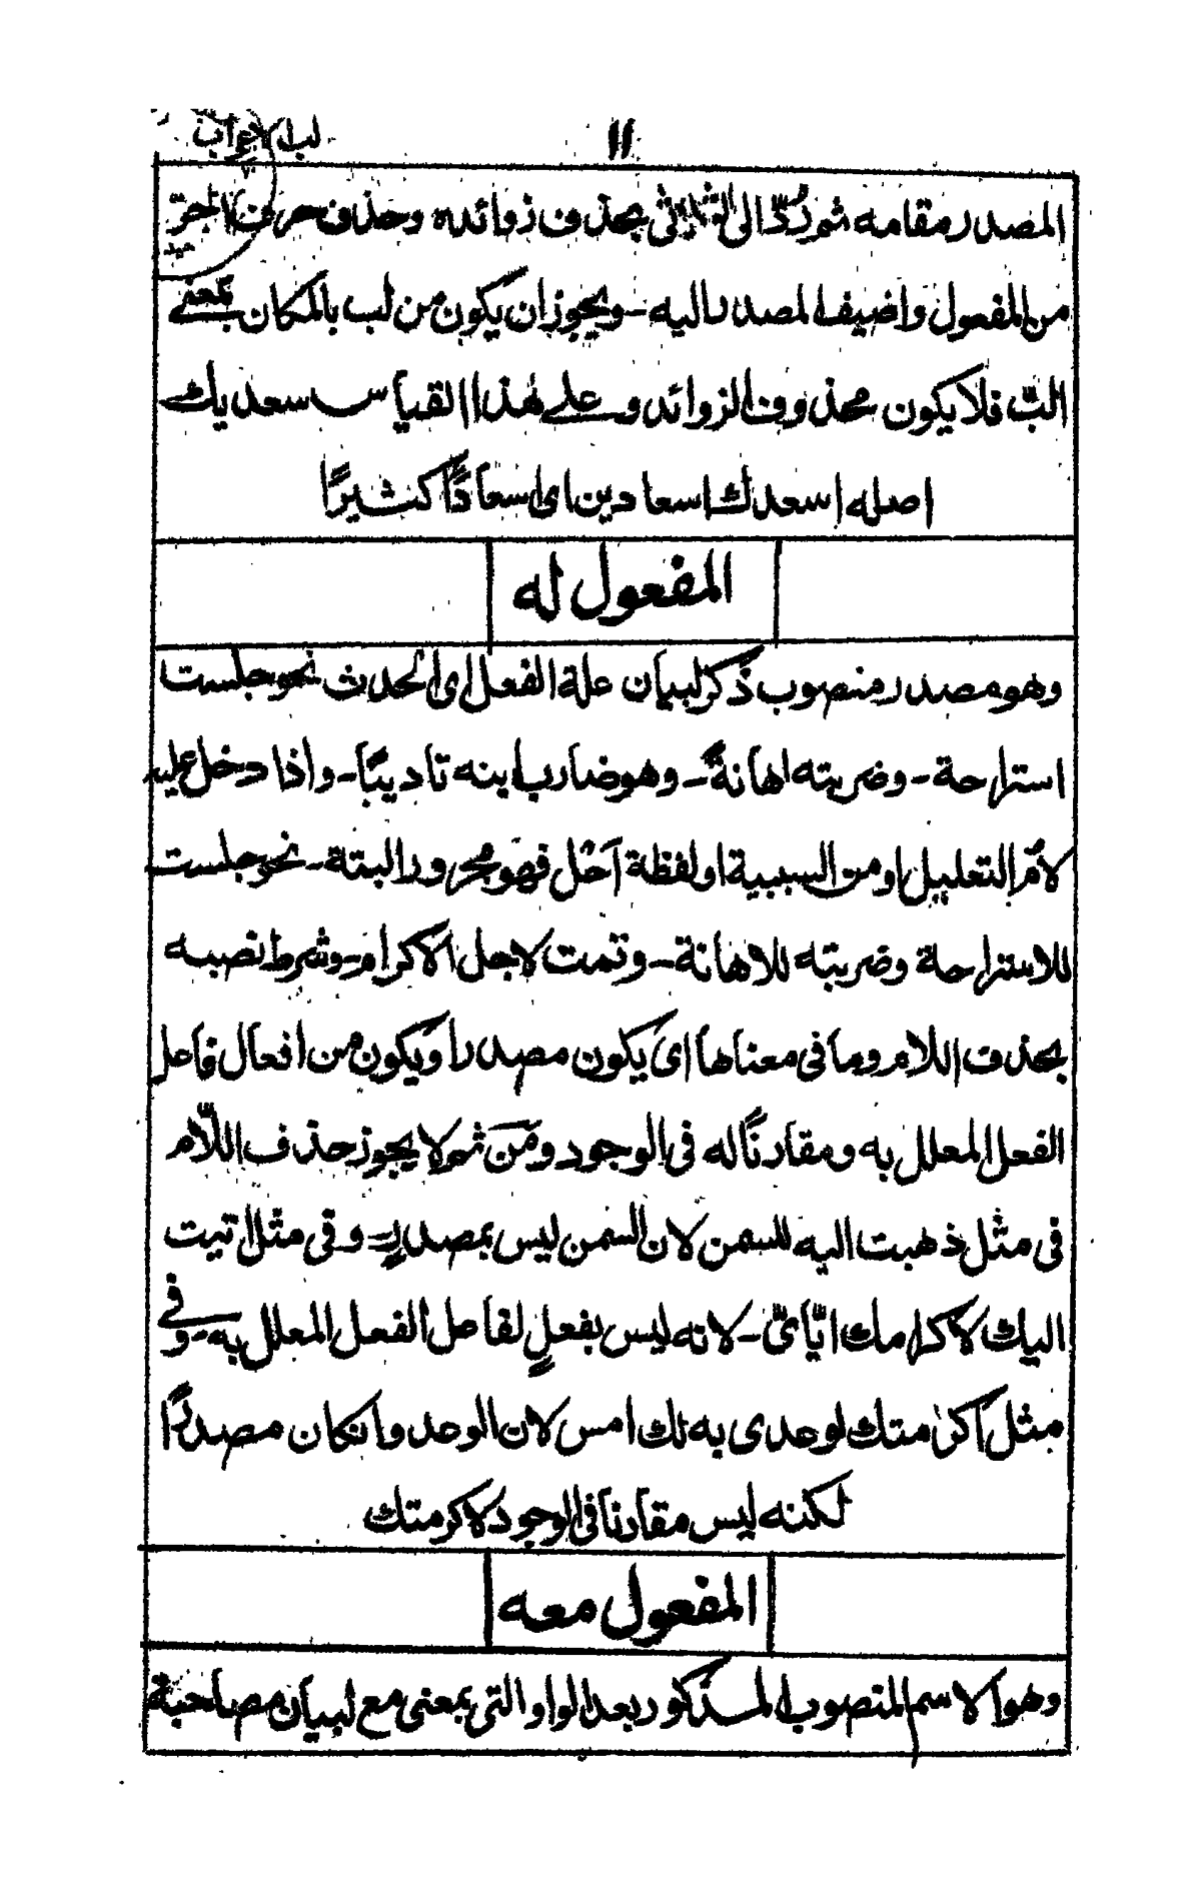 ١١ لب الاعراب
المصدر مقامه ثم رُدّ الى الثلاثى بحذف زوائده وحذف حرف الجرّ
من المفعول واضيف المصدر اليه - ويجوز ان يكون من لب بالمكان بمعنى
البّ فلا يكون محذوف الزوائد وعلے هٰذا القياس سعديك
اصله اسعدك اسعادين اى اسعادًا كثيرًا
المفعول له
وهو مصدر منصوب ذكر لبيان علة الفعل اى الحدث نحو جلست
استراحة - وضربته اهانةً - وهو ضارب ابنه تاديبًا - واذا دخل عليه
لام التعليل او من السببية او لفظة اَجْل فهو مجرور البتة - نحو جلست
للاستراحة وضربته للاهانة - وقمت لاجل الاكرام - وشرط نصبه
بحذف اللام وما فى معناها اى يكون مصدرا ويكون من افعال فاعل
الفعل المعلل به ومقارنًا له فى الوجود ومن ثم لا يجوز حذف اللّام
فى مثل ذهبت اليه للسمن لان السمن ليس بمصدرٍ - وفى مثل اتيت
اليك لاكرامك ايّاىّ - لانه ليس بفعلٍ لفاعل الفعل المعلل به - وفى
مثل اكرمتك لوعدى به لك امس لان الوعد وان كان مصدرًا
لكنه ليس مقارنا فى الوجود لاكرمتك
المفعول معه
وهو الاسم المنصوب المذكور بعد الواو التى بمعنى مع لبيان مصاحبة